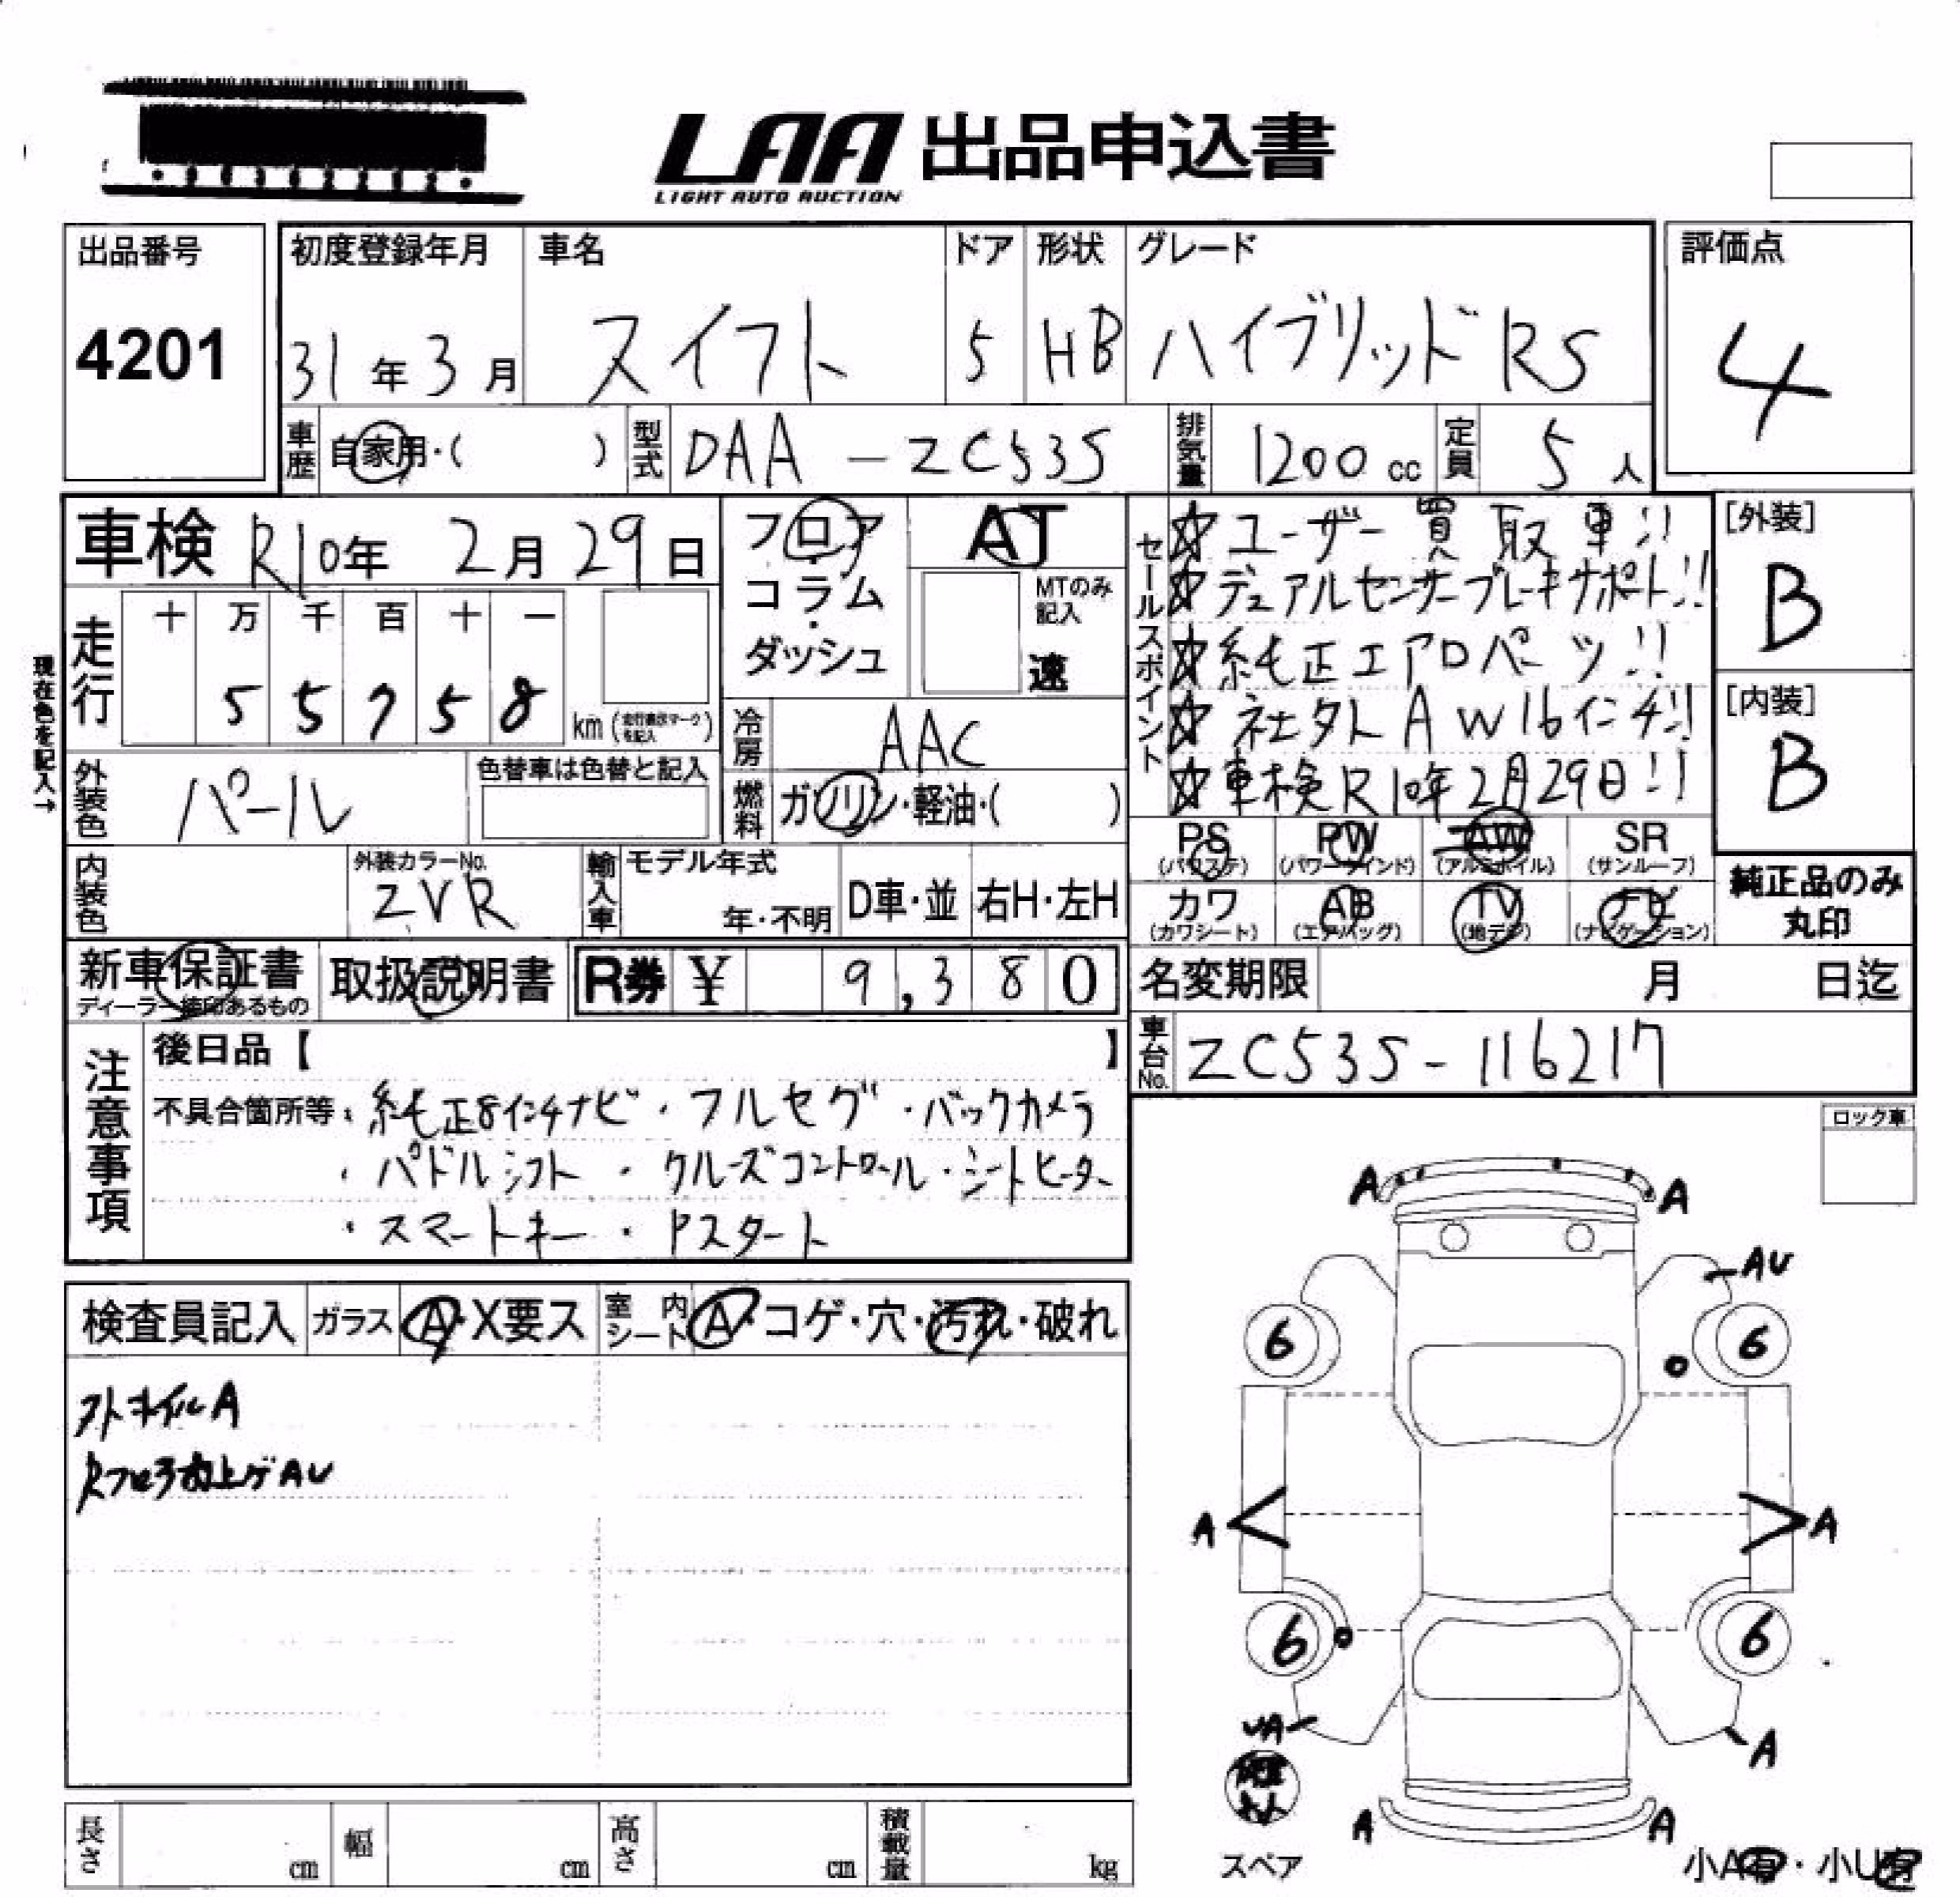 LAA 出品申込書
LIGHT AUTO AUCTION
出品番号
4201
初度登録年月
31年3月
車名
スイフト
ドア
5
形状
HB
グレード
ハイブリッドRS
評価点
4
車歴 自家用・( )
型式 DAA-ZC53S
排気量 1200cc
定員 5人
車検 R10年2月29日
現在色を記入→
走行
十 万 千 百 十 一
5 5 7 5 8 km
フロア
・
コラム
・
ダッシュ
AT
MTのみ記入
速
冷房 AAC
燃料 ガソリン・軽油・( )
外装色 パール
色替車は色替と記入
内装色
外装カラーNo.
ZVR
輸入車
モデル年式
年・不明
D車・並
右H・左H
セールスポイント
☆ユーザー買取車!!
☆デュアルセンサーブレーキサポート!!
☆純正エアロパーツ!!
☆社外AW16インチ!!
☆車検R10年2月29日!!
[外装]
B
[内装]
B
PS (パワステ)
PW (パワーウインド)
AW (アルミホイル)
SR (サンルーフ)
カワ (カワシート)
AB (エアバッグ)
TV (地デジ)
ナビ (ナビゲーション)
純正品のみ
丸印
新車保証書
ディーラー捺印あるもの
取扱説明書
R券 ¥ 9,380
名変期限 月 日迄
車台No. ZC53S-116217
注意事項
後日品【 】
不具合箇所等:純正8インチナビ・フルセグ・バックカメラ
・パドルシフト・クルーズコントロール・シートヒーター
・スマートキー・Pスタート
ロック車
検査員記入
ガラス A・X要ス
室内シート A・コゲ・穴・汚れ・破れ
ホイルA
AU
A A
AU
6 6
A A
6 6
UA
A
A A
スペア
小A有・小U有
長さ cm
幅 cm
高さ cm
積載量 kg